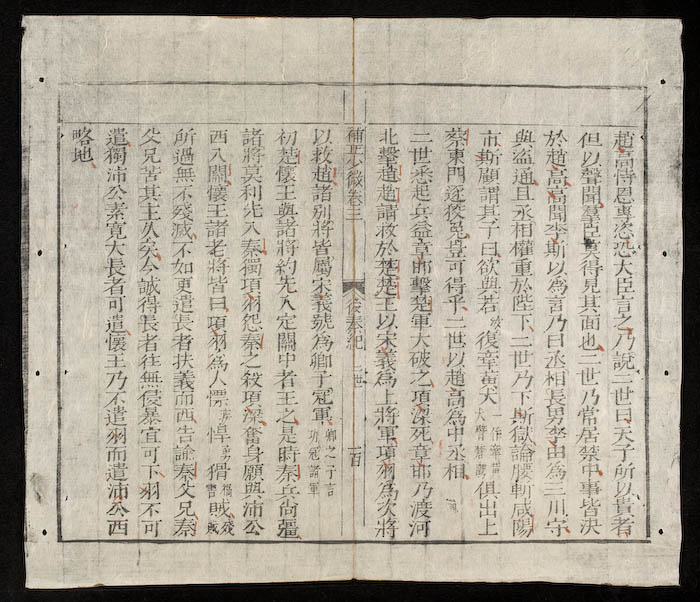 趙高恃恩專恣恐大臣言之乃說二世曰天子所以貴者
但以聲聞羣臣莫得見其面也二世乃常居禁中事皆決
於趙高高聞李斯以為言乃曰丞相長男李由為三川守
與盜通且丞相權重於陛下二世乃下斯獄論腰斬咸陽
市斯顧謂其子曰欲與若復牽黃犬俱出上
蔡東門逐狡兔豈可得乎二世以趙高為中丞相
二世悉起兵益章邯擊楚軍大破之項梁死章邯乃渡河
北擊趙趙請救於楚楚王以宋義為上將軍項羽為次將
補正少微卷三 後秦紀 二世 一百
以救趙諸別將皆屬宋義號為卿子冠軍
初楚懷王與諸將約先入定關中者王之是時秦兵尚彊
諸將莫利先入秦獨項羽怨秦之殺項梁奮身願與沛公
西入關懷王諸老將皆曰項羽為人慓悍猾賊
所過無不殘滅不如更遣長者扶義而西告諭秦父兄秦
父兄苦其主久矣今誠得長者往無侵暴宜可下羽不可
遣獨沛公素寬大長者可遣懷王乃不遣羽而遣沛公西
略地